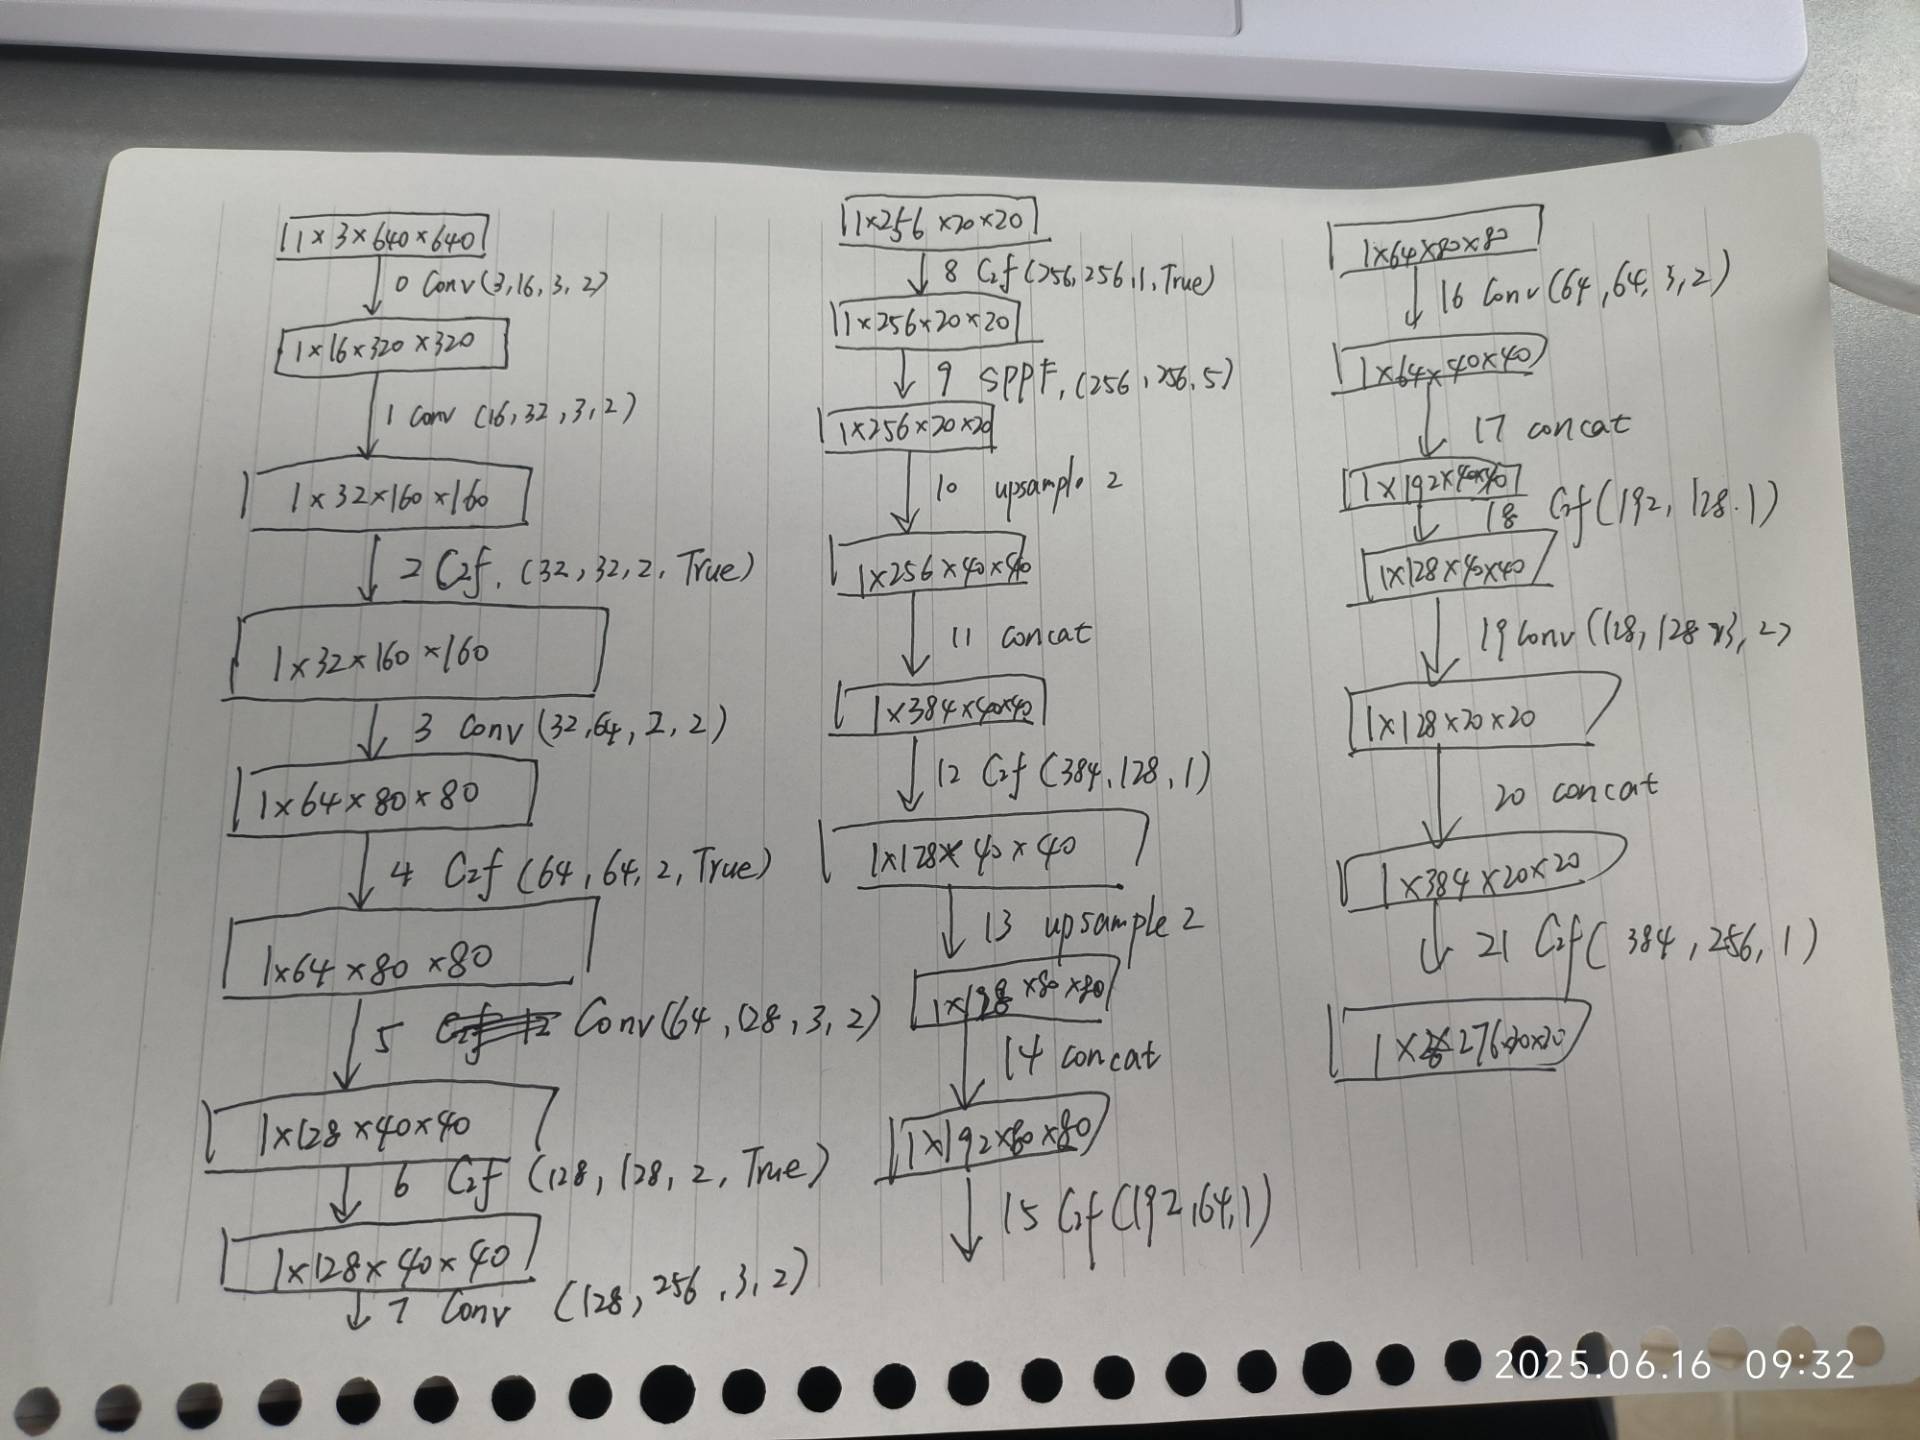 1×3×640×640
0 Conv(3,16,3,2)
1×16×320×320
1 conv (16,32,3,2)
1×32×160×160
2 C2f, (32,32,2,True)
1×32×160×160
3 Conv(32,64,2,2)
1×64×80×80
4 C2f (64,64,2,True)
1×64×80×80
5 Conv(64,128,3,2)
1×128×40×40
6 C2f (128,128,2,True)
1×128×40×40
7 Conv (128,256,3,2)
1×256×20×20
8 C2f(256,256,1,True)
1×256×20×20
9 SPPF,(256,256,5)
1×256×20×20
10 upsample 2
1×256×40×40
11 concat
1×384×40×40
12 C2f (384,128,1)
1×128×40×40
13 upsample 2
1×128×80×80
14 concat
1×192×80×80
15 C2f(192,64,1)
1×64×80×80
16 Conv(64,64,3,2)
1×64×40×40
17 concat
1×192×40×40
18 C2f(192,128.1)
1×128×40×40
19 Conv(128,128,3,2)
1×128×20×20
20 concat
1×384×20×20
21 C2f(384,256,1)
1×276×20×20
2025.06.16 09:32